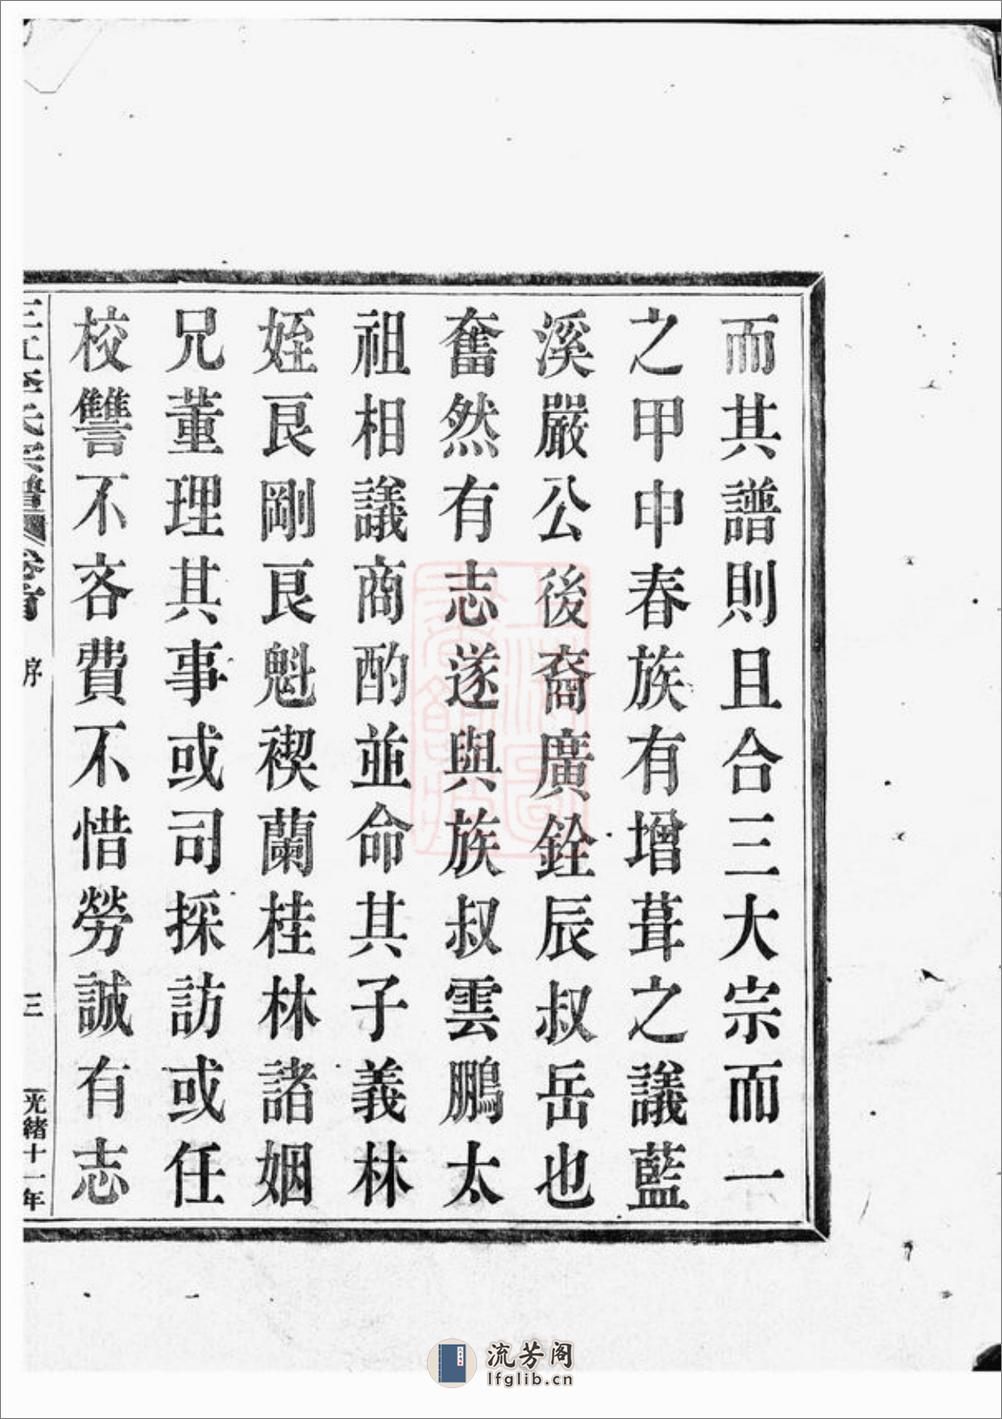 而其譜則且合三大宗而一
之甲申春族有增葺之議藍
溪嚴公後裔廣銓辰叔岳也
奮然有志遂與族叔雲鵬太
祖相議商酌並命其子義林
姪艮剛艮魁禊蘭桂林諸姻
兄董理其事或司採訪或任
校讐不吝費不惜勞誠有志
李氏宗譜 卷首 序 三 光緒十一年
流芳阁
lfglib.cn